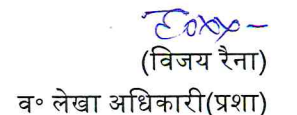 (विजय रैना)
व॰ लेखा अधिकारी(प्रशा)